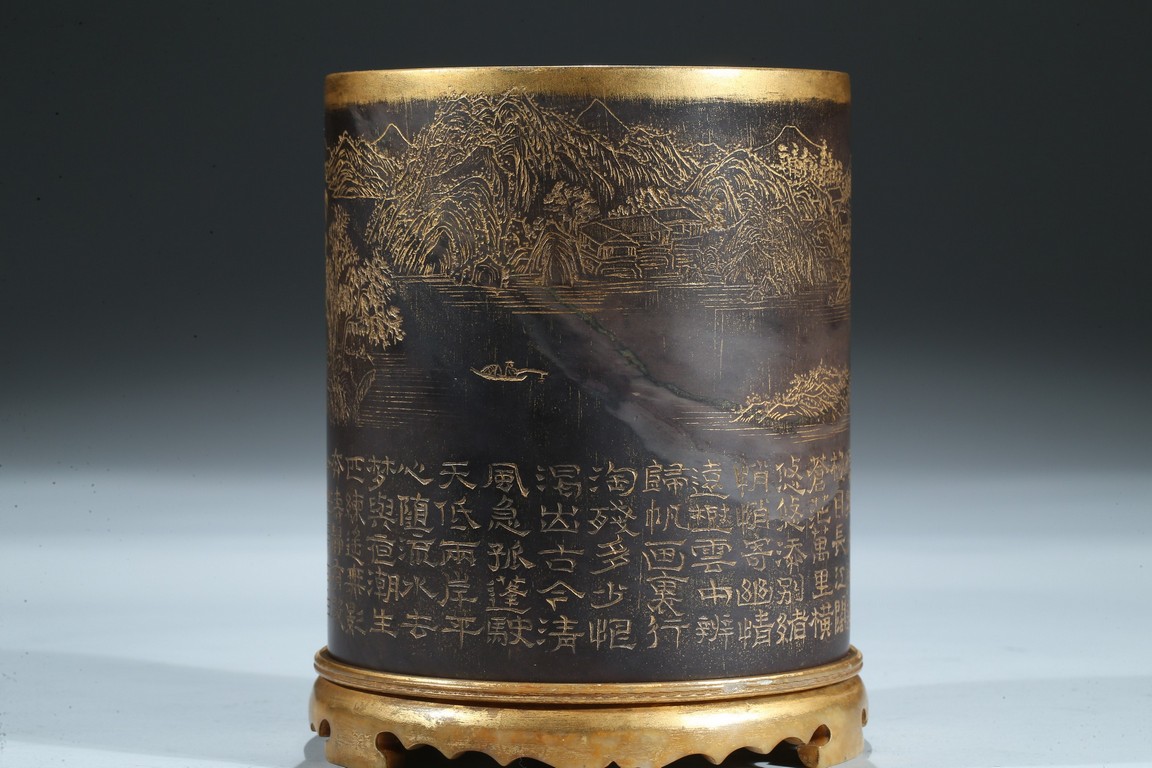 日長江闊
蒼茫萬里橫
悠悠添別緒
悄悄寄幽情
遠樹雲中辨
歸帆画裏行
淘殘多少恨
出古今清
風急孤蓬駛
天低兩岸平
心隨流水去
梦與亱潮生
匹練影